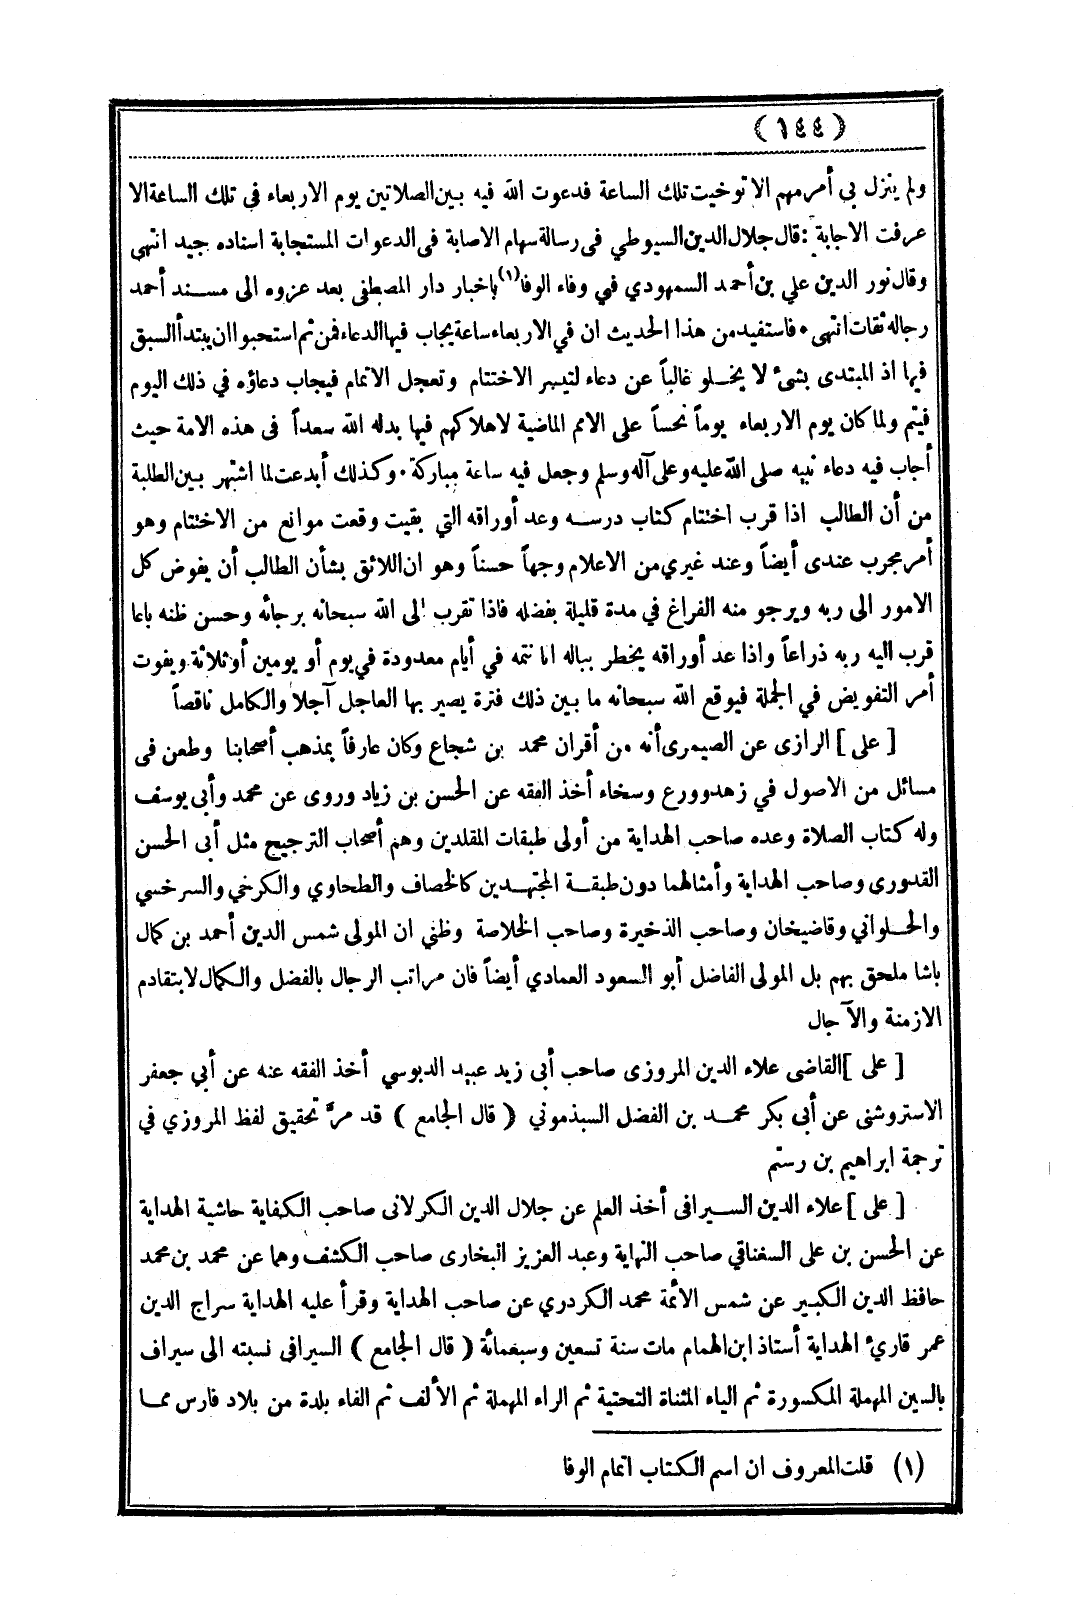 (١٤٤)
ولم ينزل بي أمر مهم الا توخيت تلك الساعة فدعوت الله فيه بين الصلاتين يوم الاربعاء في تلك الساعة الا
عرفت الاجابة : قال جلال الدين السيوطي في رسالة سهام الاصابة في الدعوات المستجابة اسناده جيد انتهى
وقال نور الدين علي بن أحمد السمهودي في وفاء الوفا(١) باخبار دار المصطفى بعد عزوه الى مسند أحمد
رجاله ثقات انتهى • فاستفيد من هذا الحديث ان في الاربعاء ساعة يجاب فيها الدعاء فمن ثم استحبوا ان يبتدأ السبق
فيها اذ المبتدى بشئ لا يخلو غالباً عن دعاء لتيسر الاختتام وتعجل الاتمام فيجاب دعاؤه في ذلك اليوم
فيتم ولما كان يوم الاربعاء يوماً نحساً على الامم الماضية لاهلاكهم فيها بدله الله سعداً في هذه الامة حيث
أجاب فيه دعاء نبيه صلى الله عليه وعلى آله وسلم وجعل فيه ساعة مباركة • وكذلك أبدعت لما اشتهر بين الطلبة
من أن الطالب اذا قرب اختتام كتاب درسه وعد أوراقه التي بقيت وقعت موانع من الاختتام وهو
أمر مجرب عندى أيضاً وعند غيري من الاعلام وجهاً حسناً وهو ان اللائق بشأن الطالب أن يفوض كل
الامور الى ربه ويرجو منه الفراغ في مدة قليلة بفضله فاذا تقرب الى الله سبحانه برجائه وحسن ظنه باعا
قرب اليه ربه ذراعاً واذا عد أوراقه يخطر بباله انا نتمه في أيام معدودة في يوم أو يومين أو ثلاثة ويفوت
أمر التفويض في الجملة فيوقع الله سبحانه ما بين ذلك فترة يصير بها العاجل آجلا والكامل ناقصاً
[ على ] الرازى عن الصيمرى أنه من أقران محمد بن شجاع وكان عارفاً بمذهب أصحابنا وطعن فى
مسائل من الاصول في زهد وورع وسخاء أخذ الفقه عن الحسن بن زياد وروى عن محمد وأبى يوسف
وله كتاب الصلاة وعده صاحب الهداية من أولى طبقات المقلدين وهم أصحاب الترجيح مثل أبى الحسن
القدورى وصاحب الهداية وأمثالهما دون طبقة المجتهدين كالخصاف والطحاوي والكرخي والسرخسي
والحلواني وقاضيخان وصاحب الذخيرة وصاحب الخلاصة وظني ان المولى شمس الدين أحمد بن كمال
باشا ملحق بهم بل المولى الفاضل أبو السعود العمادي أيضاً فان مراتب الرجال بالفضل والكمال لا بتقادم
الازمنة والآجال
[ على ] القاضى علاء الدين المروزى صاحب أبى زيد عبيد الدبوسي أخذ الفقه عنه عن أبي جعفر
الاستروشنى عن أبى بكر محمد بن الفضل السبذموني ( قال الجامع ) قد مرَّ تحقيق لفظ المروزي في
ترجمة ابراهيم بن رستم
[ على ] علاء الدين السيرافى أخذ العلم عن جلال الدين الكرلانى صاحب الكفاية حاشية الهداية
عن الحسن بن على السغناقي صاحب النهاية وعبد العزيز البخارى صاحب الكشف وهما عن محمد بن محمد
حافظ الدين الكبير عن شمس الائمة محمد الكردري عن صاحب الهداية وقرأ عليه الهداية سراج الدين
عمر قارئ الهداية أستاذ ابن الهمام مات سنة تسعين وسبعمائة ( قال الجامع ) السيرافى نسبته الى سيراف
بالسين المهملة المكسورة ثم الياء المثناة التحتية ثم الراء المهملة ثم الألف ثم الفاء بلدة من بلاد فارس مما
(١) قلت المعروف ان اسم الكتاب اتمام الوفا